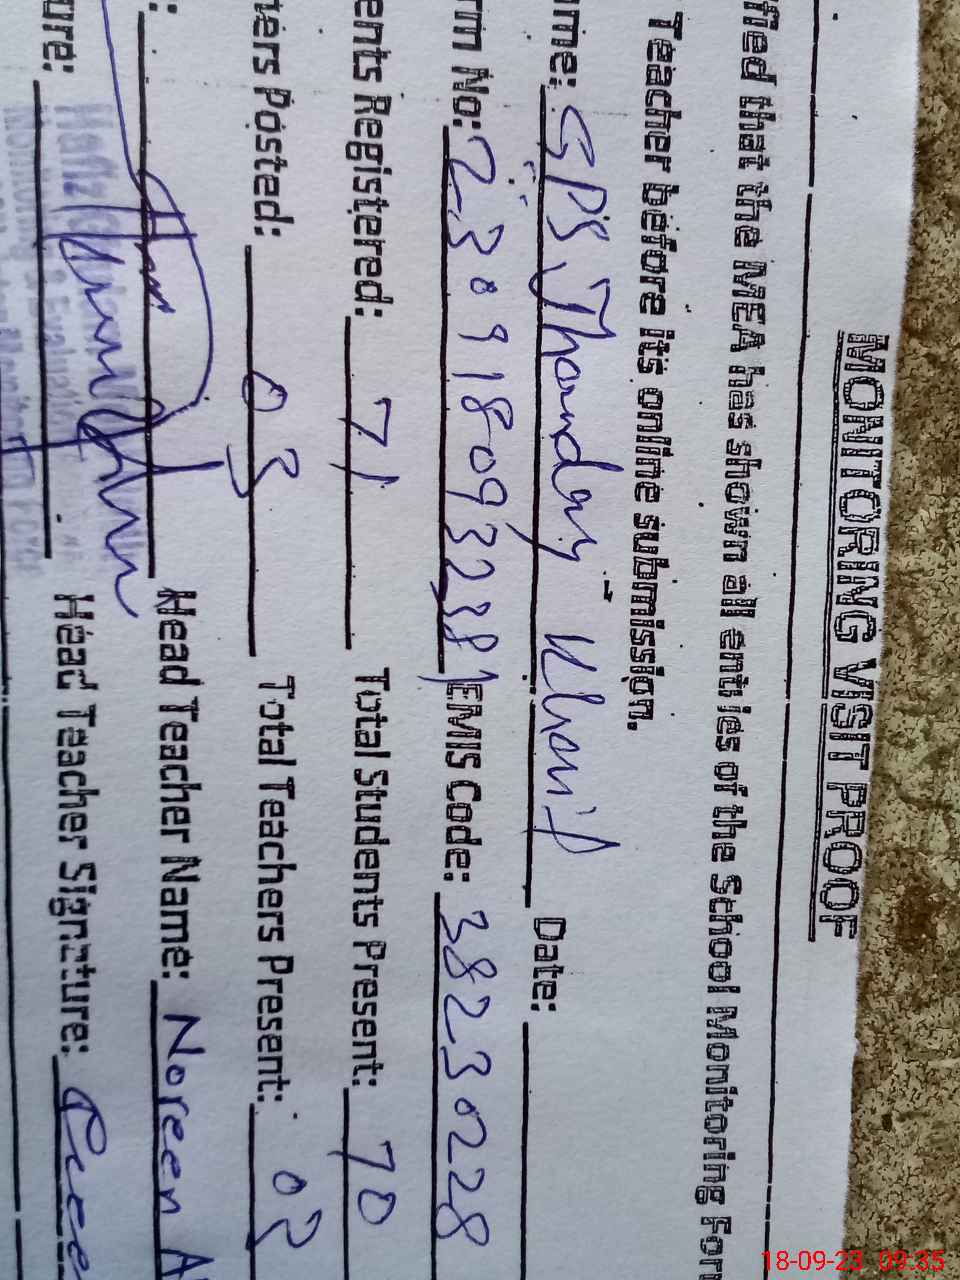 MONITORING VISIT PROOF
fied that the MEA has shown all entries of the School Monitoring Form
Teacher before its online submission.
ame: GPS Jhanday Date:
rm No: 23091809323381 EMIS Code: 3823028
ents Registered: 71 Total Students Present: 70
hers Posted: 03 Total Teachers Present: 03
Head Teacher Name: Noreen A
ure: Head Teacher Signature:
Monitoring & Evaluation
18-09-23 09:35